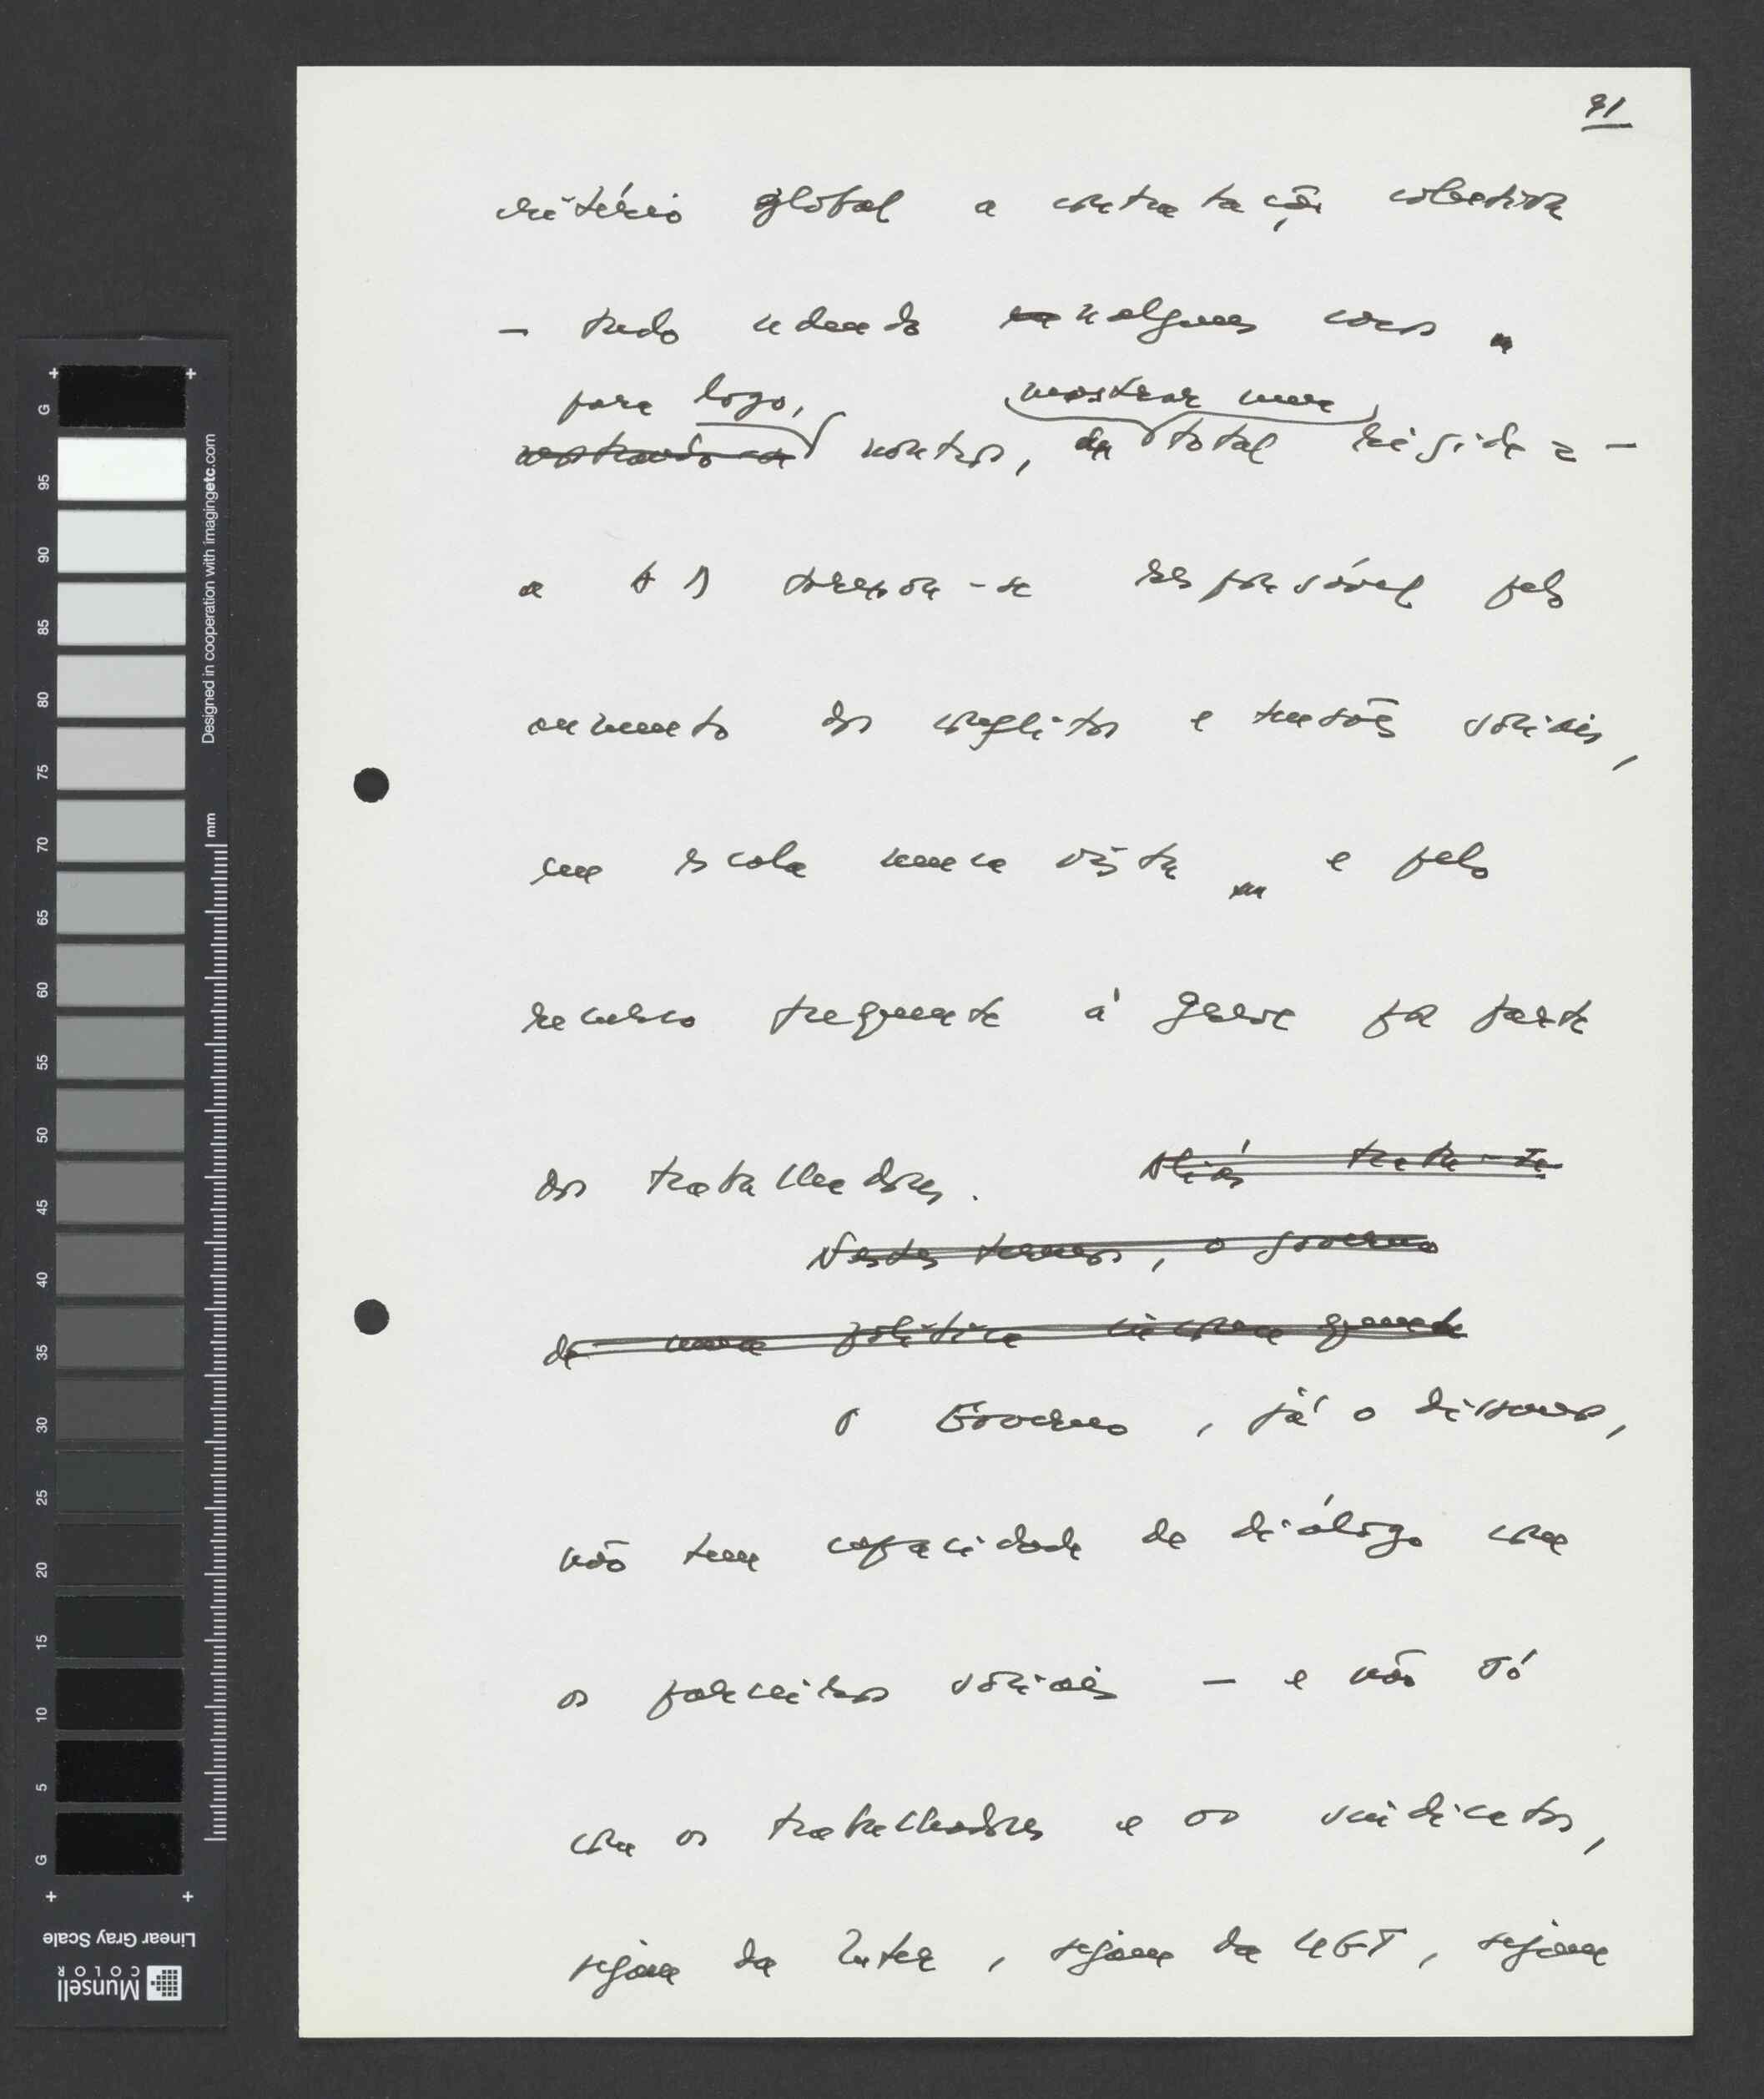 91
critério global a contratação colectiva
— tudo cedendo nalguns casos
para logo, mostrar uma
noutros, da total rigidez —
a AD tornou-se responsável pelo
aumento dos conflitos e tensões sociais,
em escala nunca vista e pelo
recurso frequente à greve por parte
dos trabalhadores. Aliás trata-se
Nestes termos, o governo
de uma política
O Governo, já o dissemos,
não tem capacidade de diálogo com
os parceiros sociais — e não só
com os trabalhadores e os sindicatos,
sejam da Inter, sejam da UGT, sejam
G 95 90 85 80 75 70 65 60 55 50 45 40 35 30 25 20 15 10 5 G
Designed in cooperation with imagingetc.com
mm
Linear Gray Scale
Munsell
COLOR